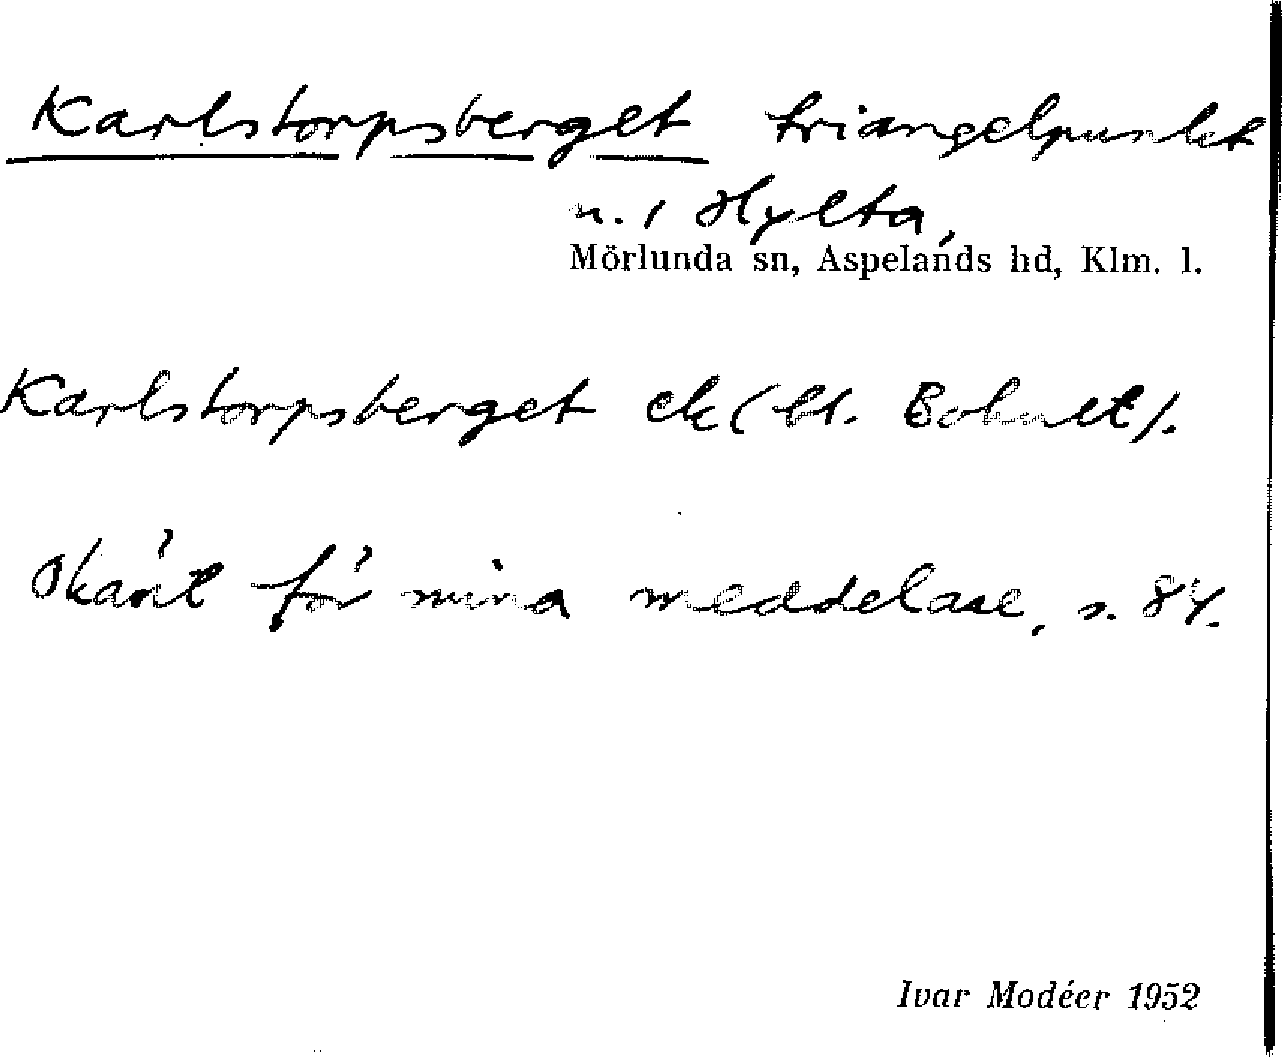 Karlstorpsberget triangelpunkt
n. i Hylta,
Mörlunda sn, Aspelands hd, Klm. l.
Karlstorpsberget ek (bl. Bohult).
Okänt för mina meddelare, s. 84.
Ivar Modéer 1952